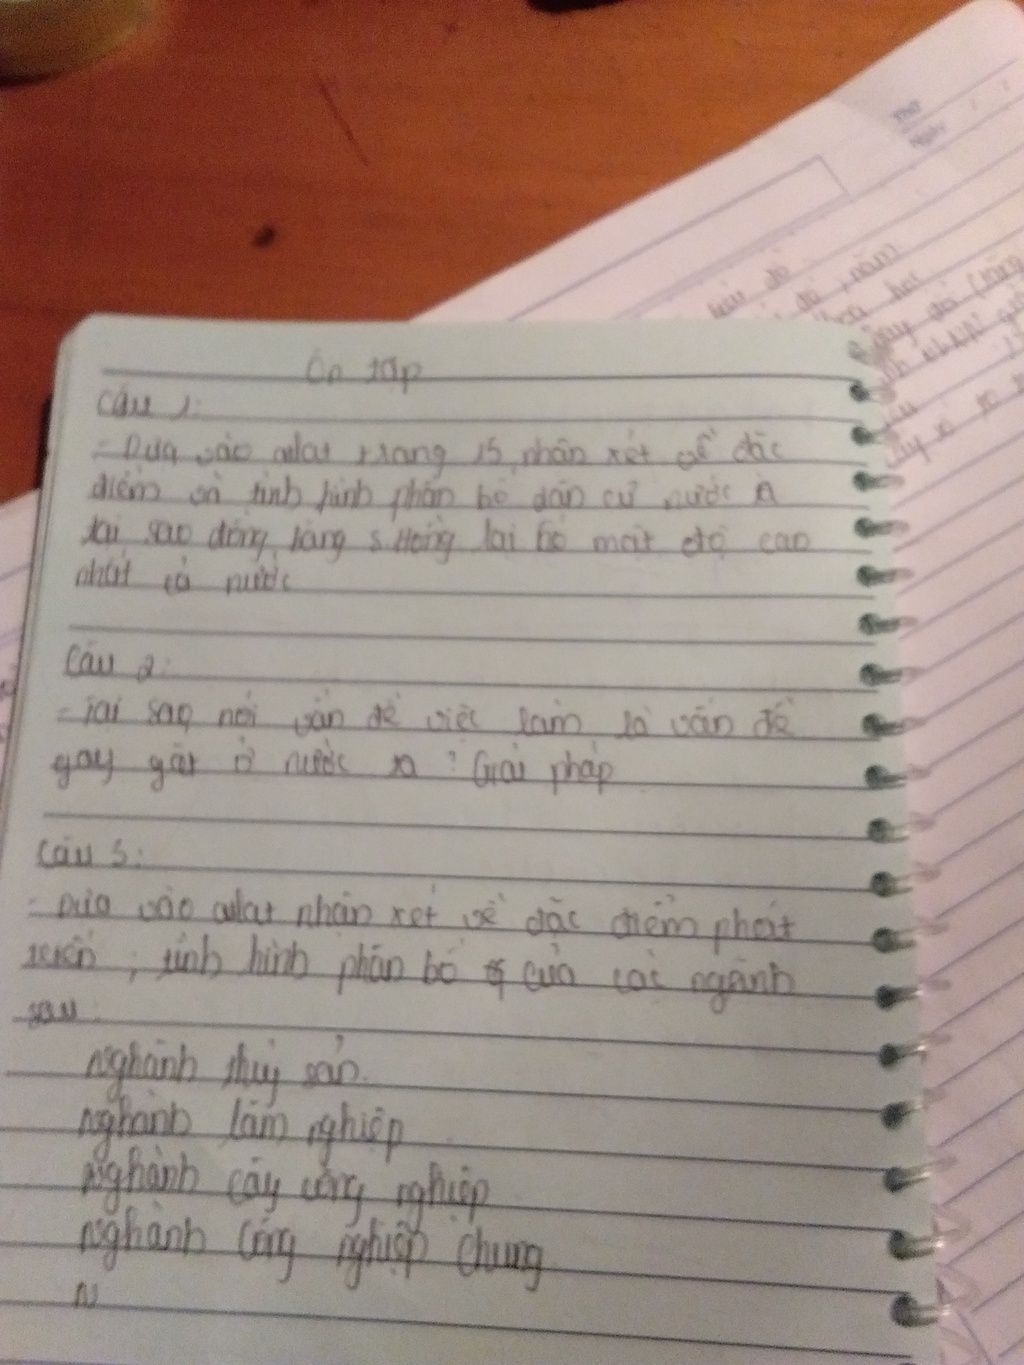 Ôn tập
Câu 1:
- Dựa vào atlat trang 15, nhận xét về đặc
điểm và tình hình phân bố dân cư nước ta
tại sao đồng bằng s.Hồng lại có mật độ cao
nhất cả nước
Câu 2:
- Tại sao nói vấn đề việc làm là vấn đề
gay gắt ở nước ta? Giải pháp
Câu 3:
- Dựa vào atlat nhận xét về đặc điểm phát
triển, tình hình phân bố của các ngành
sau:
Nghành thuỷ sản.
Nghành lâm nghiệp
Nghành cây công nghiệp
Nghành công nghiệp chung
N
Thứ
Ngày